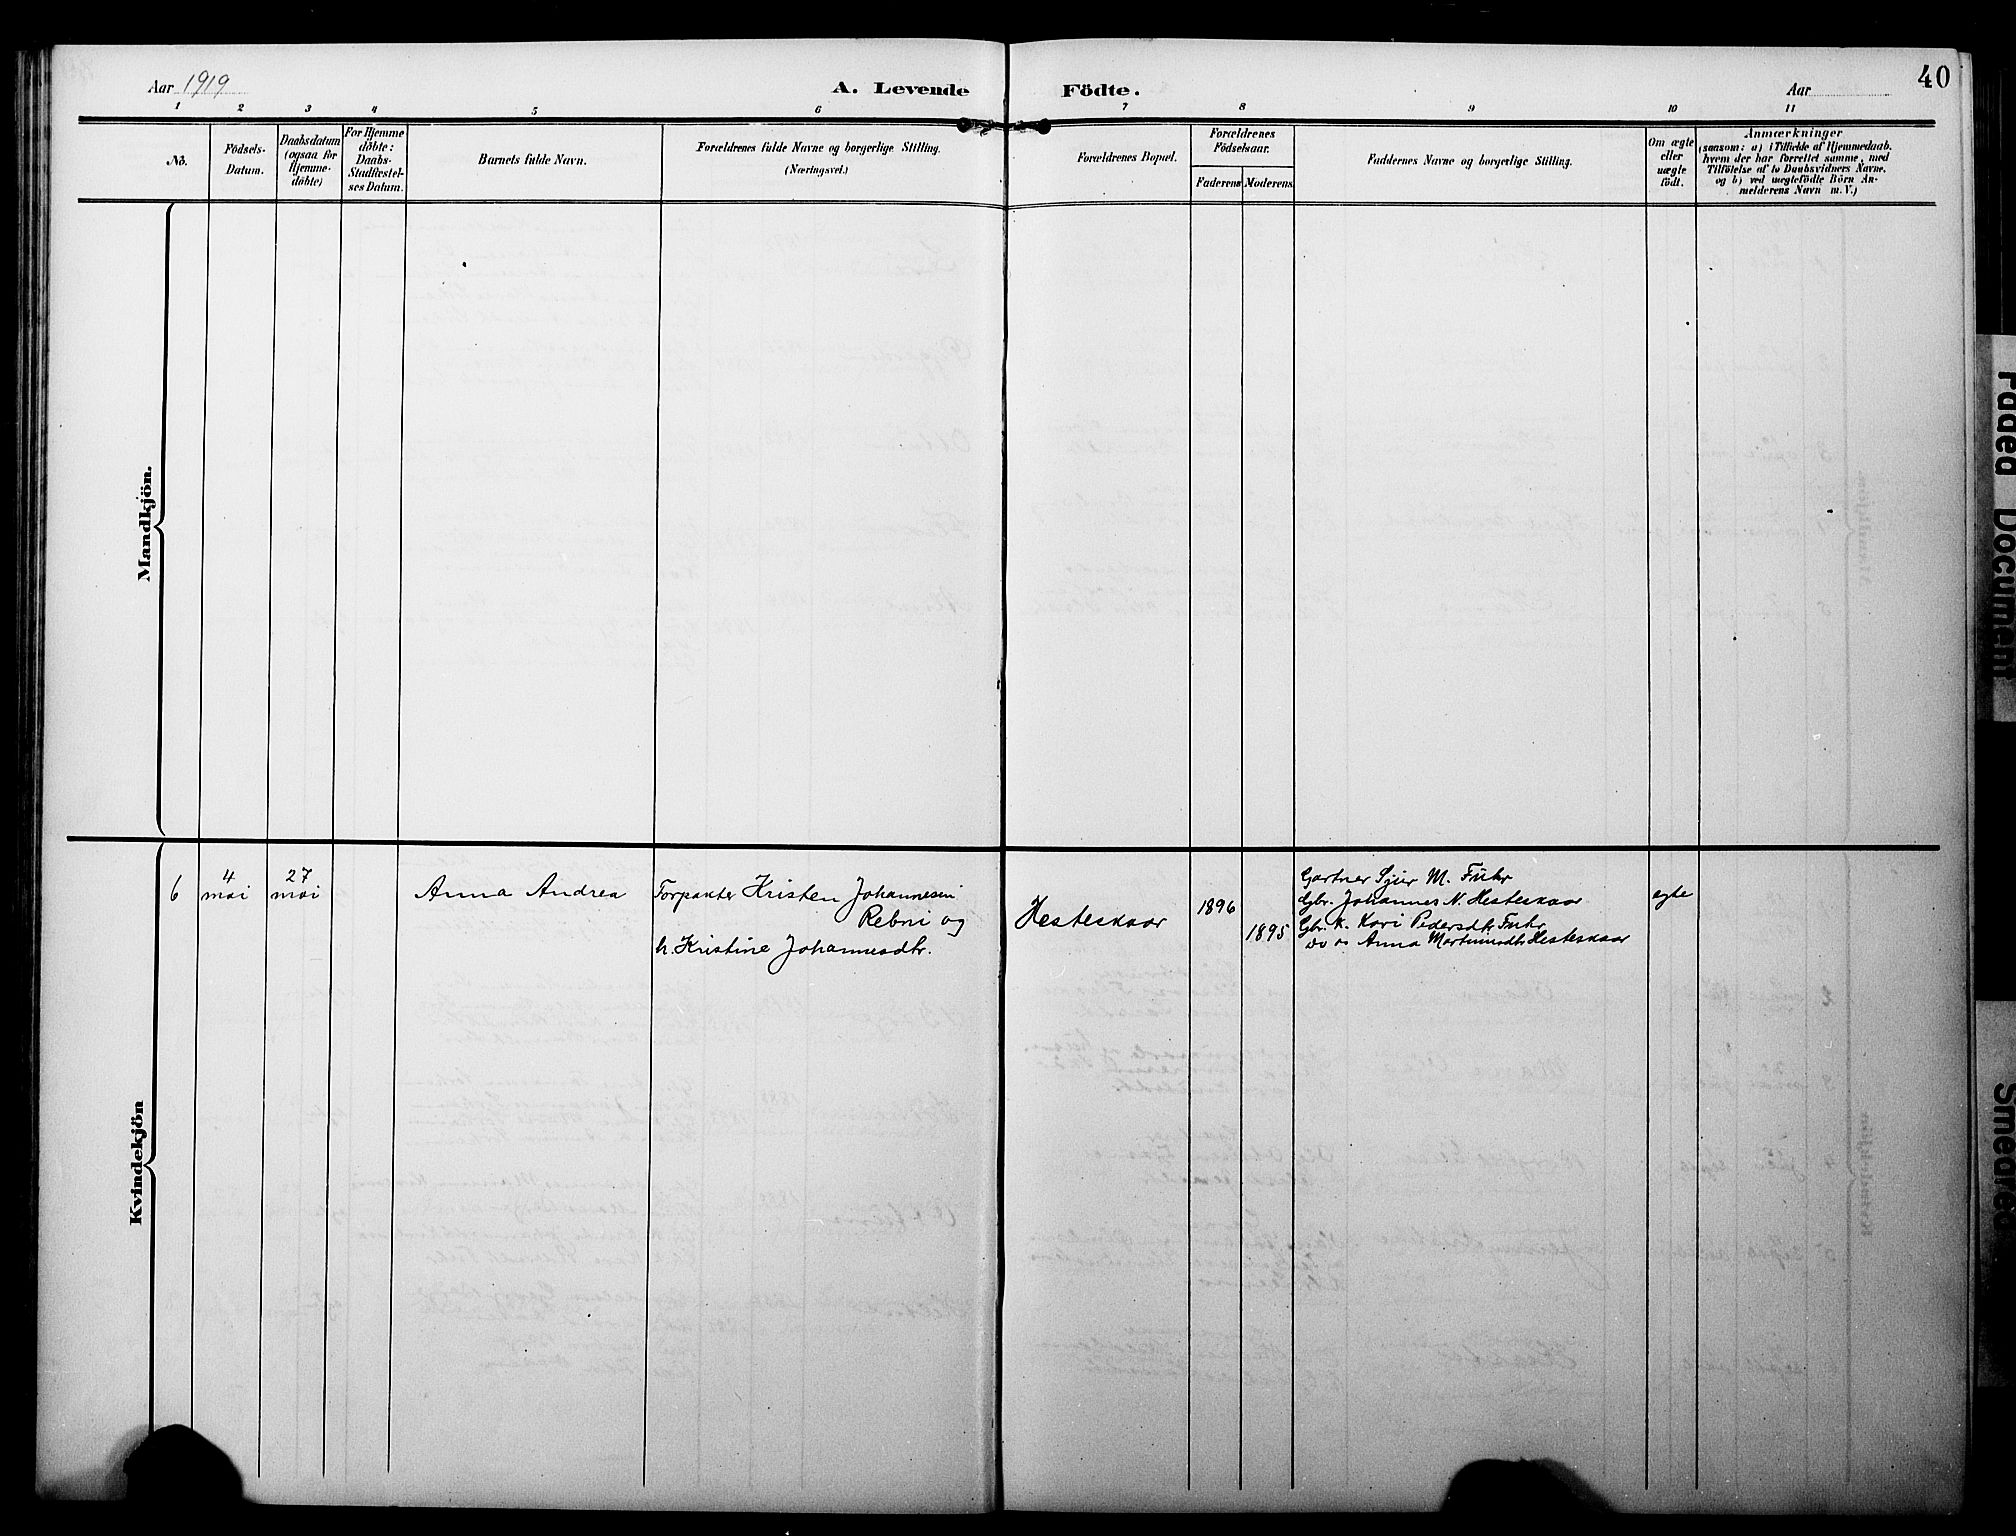 Aar 1919
A. Levende Födte.
Aar
40
1 2 3 4 5 6 7 8 9 10 11
No.
Födsels-
Datum.
Daabsdatum
(ogsaa for
Hjemme-
döbte)
For Hjemme
döbte:
Daabs-
Stadfæstel-
ses Datum.
Barnets fulde Navn.
Forældrenes fulde Navne og borgerlige Stilling.
(Næringsvei.)
Forældrenes Bopæl.
Forældrenes
Födselsaar.
Faderens
Moderens
Faddernes Navne og borgerlige Stilling.
Om ægte
eller
uægte
födt.
Anmærkninger
(saasom: a) i Tilfælde af Hjemmedaab,
hvem der har forrettet samme, med
Tilföielse af to Daabsvidners Navne.
og b) ved uægtefödte Börn An-
melderens Navn m. V.)
Mandkjön.
Kvindekjön
6
4
mai
27
mai
Anna Andrea
Forpakter Kristen Johannesen
Rebni og
h. Kristine Johannesdtr.
Hesteskaar
1896
1895
Gartner Sjur M. Fuhr
Gbr. Johannes N. Hesteskaar
Gbr. k. Kari Pedersdtr Fuhr
Do Anna Martinusdtr Hesteskaar
egte
Faded Document
Smeared